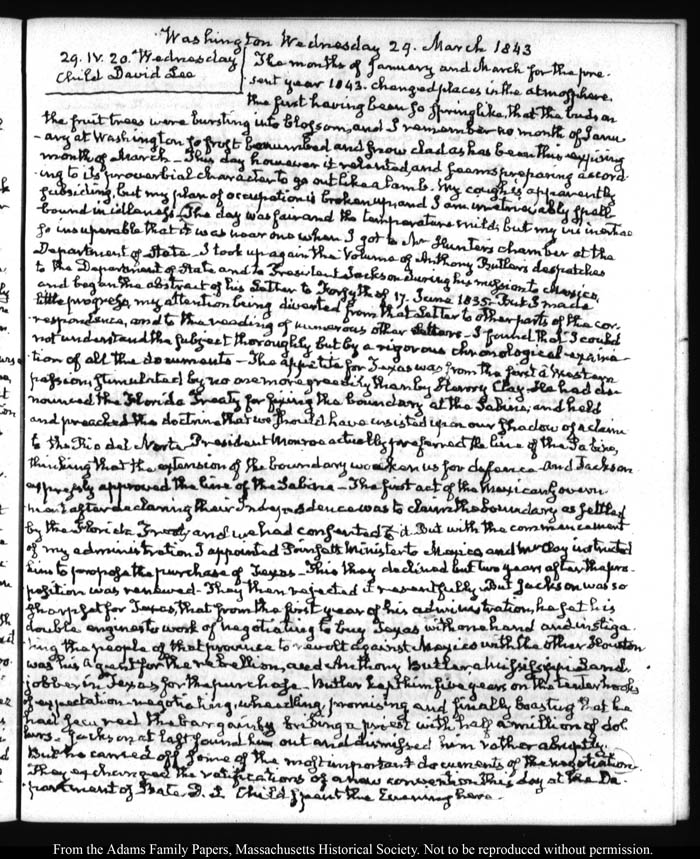 Washington Wednesday 29. March 1843
29. IV. 20. Wednesday
Child David Lee
The months of January and March for the pre-
sent year 1843. changed places in the atmosphere.
the first having been so springlike, that the buds on
the fruit trees were bursting into blossom, and I remember no month of Janu-
ary at Washington so frost benumbed and snow clad as has been this expiring
month of March_ This day however it relented and seems preparing accord-
ing to its proverbial character to go out like a lamb. My cough is apparently
subsiding, but my plan of occupation is broken up, and I am irretrievably spell-
bound in idleness_ The day was fair and the temperature mild; but my vis inertiae
so insuperable that it was near one when I got to Mr Hunter's chamber at the
Department of State. I took up again the Volume of Anthony Butler's despatches
to the Department of State and to President Jackson during his mission to Mexico,
and began the abstract of his Letter to Forsyth of 17. June 1835_ But I made
little progress, my attention being diverted from that Letter to other parts of the cor-
respondence, and to the reading of numerous other Letters_ I found that I could
not understand the subject thoroughly but by a rigorous chronological examina-
tion of all the documents_ The appetite for Texas was from the first a Western
passion, stimulated by no one more greedily than by Henry Clay_ He had de-
nounced the Florida Treaty for fixing the boundary at the Sabine; and held
and preached the doctrine that we should have insisted upon our shadow of a claim
to the Rio del Norte_ President Monroe actually preferred the line of the Sabine,
thinking that the extension of the boundary weaken us for defence_ and Jackson
expressly approved the line of the Sabine_ The first act of the Mexican Govern-
ment after declaring their Independence was to claim the boundary as settled
by the Florida Treaty and we had consented to it. But with the commencement
of my administration I appointed Poinsett Minister to Mexico, and Mr Clay instructed
him to propose the purchase of Texas_ This they declined but two years after the pro-
position was renewed_ They then rejected it resentfully_ But Jackson was so
sharp set for Texas, that from the first year of his administration, he set his
double engines to work of negotiating to buy Texas with one hand and instiga-
ting the people of that province to revolt against Mexico with the other_ Houston
was his Agent for the rebellion, and Anthony Butler a Mississippi land-
jobber in Texas for the purchase_ Butler kept him five years on the tenterhooks
of expectation_ negotiating, wheedling, promising and finally boasting that he
had secured the bargain by bribing a priest with half a million of dol-
lars_ Jackson at last found him out and dismissed him rather abruptly.
But he carried off some of the most important documents of the negotiation_
They exchanged the ratifications of a new convention this day at the De-
partment of State. D. L. Child spent the Evening here_
From the Adams Family Papers, Massachusetts Historical Society. Not to be reproduced without permission.